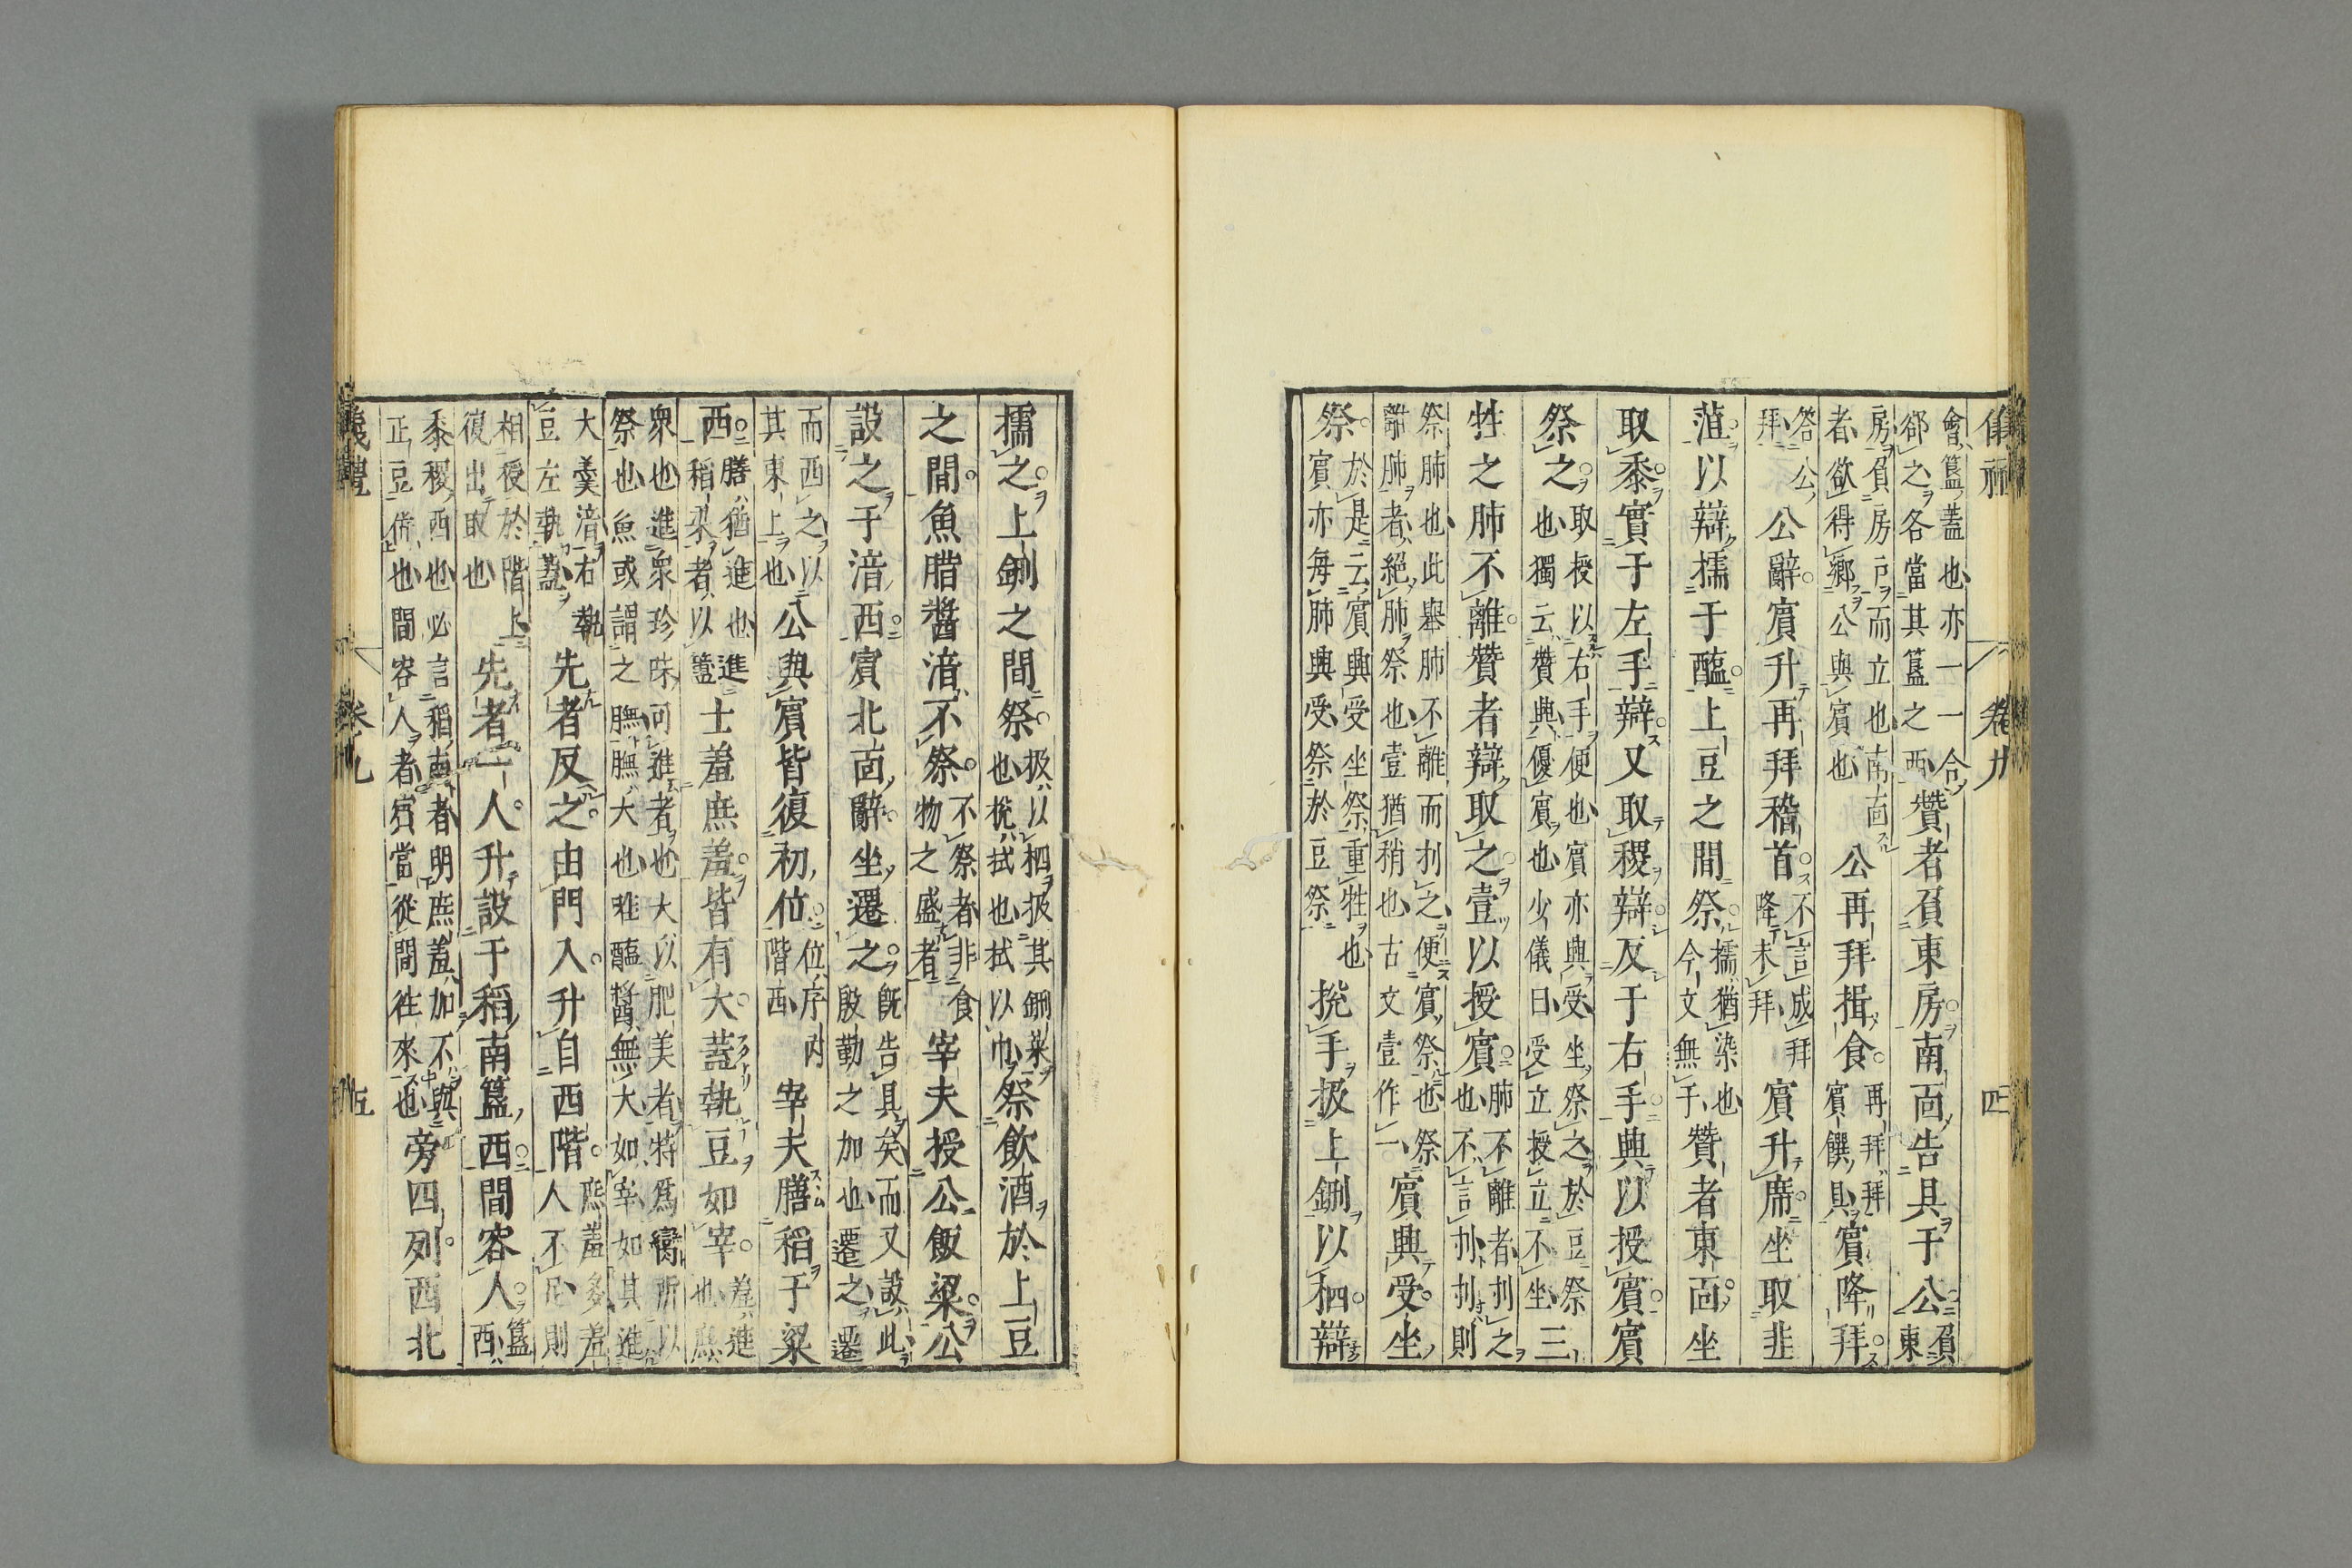 儀禮 卷九 四
會簋蓋也亦一一合
郤之各當其簋之西贊者負東房南面告具于公負東
房負房戶而立也南面
者欲得鄉公與賓也公再拜揖食再拜拜
賓饌具賓降拜
荅公
拜公辭賓升再拜稽首不言成拜
降未拜賓升席坐取韭
菹以辯擩于醢上豆之間祭擩猶染也
今文無于贊者東面坐
取黍實于左手辯又取稷辯反于右手興以授賓賓
祭之取授以右手便也賓亦興受坐祭之於豆祭
也獨云贊興優賓也少儀曰受立授立不坐三
牲之肺不離贊者辯取之壹以授賓肺不離者刌之
也不言刌刌則
祭肺也此舉肺不離而刌之便賓祭也祭
離肺者絕肺祭也壹猶稍也古文壹作一賓興受坐
祭於是云賓興受坐祭重牲也
賓亦每肺興受祭於豆祭挩手扱上鉶以柶辯
擩之上鉶之間祭扱以柶扱其鉶菜
也挩拭也拭以巾祭飲酒於上豆
之間魚腊醬湆不祭不祭者非食
物之盛者宰夫授公飯粱公
設之于湆西賓北面辭坐遷之既告具矣而又設此
殷勤之加也遷之遷
而西之以
其東上也公與賓皆復初位位序內
階西宰夫膳稻于粱
西膳猶進也進
稻粱者以簠士羞庶羞皆有大蓋執豆如宰羞進
也庶
眾也進眾珍味可進者也大以肥美者特為臠所以
祭也魚或謂之膴膴大也唯醢醬無大如宰如其進
大羹湆右執
豆左執蓋先者反之由門入升自西階庶羞多羞
人不足則
相授於階上
復出取也先者一人升設于稻南簋西間容人簋
西
黍稷西也必言稻南者明庶羞加不與
正豆併也間容人者賓當從間往來也旁四列西北
儀禮 卷九 五